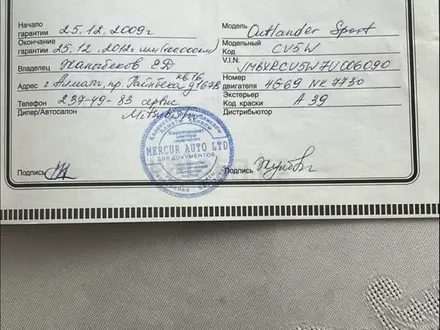 Начало
гарантии 25.12.2009г
Окончание
гарантии 25.12.2012г или (100000км)
Владелец
Адрес г Алматы, пр. Райымбека д 167В кв 16
Телефон 237-49-83 сервис
Дилер/Автосалон Mitsubishi
Подпись
Модель Outlander Sport
Модельный
Код CV5W
V.I.N.
Номер
двигателя 4G69 NK 7730
Экстерьер
Код краски A 39
Дистрибьютор
Подпись
MERCUR AUTO LTD
ДЛЯ ДОКУМЕНТОВ